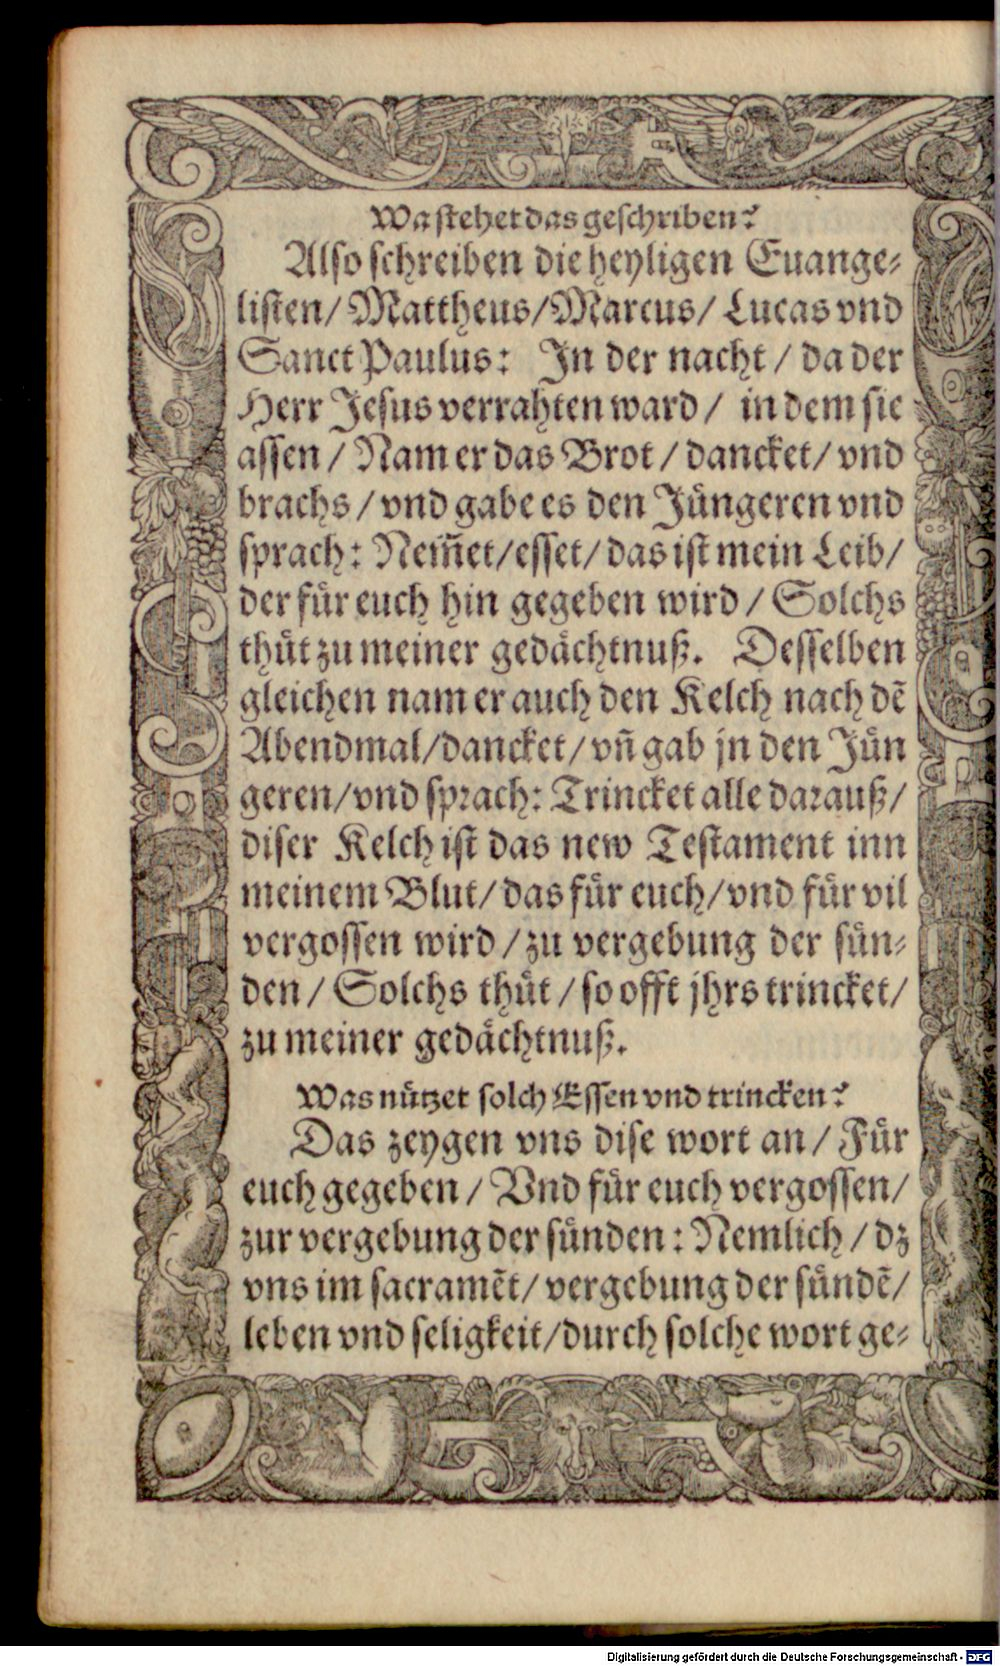 Wa stehet das geschriben?
Also schreiben die heyligen Euange⸗
listen/ Mattheus/ Marcus/ Lucas vnd
Sanct Paulus: In der nacht / da der
Herr Jesus verrahten ward / in dem sie
assen / Nam er das Brot / dancket/ vnd
brachs / vnd gabe es den Jüngeren vnd
sprach: Nem̃et/esset/ das ist mein Leib/
der für euch hin gegeben wird / Solchs
thüt zu meiner gedächtnuß. Desselben
gleichen nam er auch den Kelch nach dẽ
Abendmal/dancket/ vñ gab jn den Jün
geren/vnd sprach: Trincket alle darauß/
diser Kelch ist das new Testament inn
meinem Blut/ das für euch/ vnd für vil
vergossen wird / zu vergebung der sün⸗
den / Solchs thüt / so offt jhrs trincket/
zu meiner gedächtnuß.
Was nützet solch Essen vnd trincken?
Das zeygen vns dise wort an / Für
euch gegeben / Vnd für euch vergossen/
zur vergebung der sünden: Nemlich / dz
vns im sacramẽt/ vergebung der sündẽ/
leben vnd seligkeit/durch solche wort ge⸗
Digitalisierung gefördert durch die Deutsche Forschungsgemeinschaft - DFG